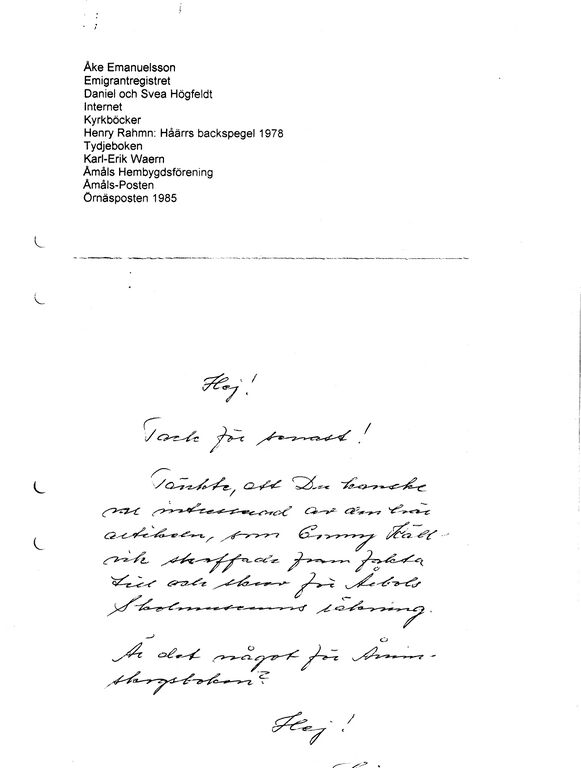 Åke Emanuelsson
Emigrantregistret
Daniel och Svea Högfeldt
Internet
Kyrkböcker
Henry Rahmn: Håärrs backspegel 1978
Tydjeboken
Karl-Erik Waern
Åmåls Hembygdsförening
Åmåls-Posten
Örnäsposten 1985
Hej!
Tack för senast!
Tänkte, att Du kanske
var intresserad av den här
artikeln, som Conny Käll-
vik skaffade fram fakta
till och skrev för Ärbols
Skolmuseums räkning.
Är det något för Ånim-
skogsboken?
Hej!